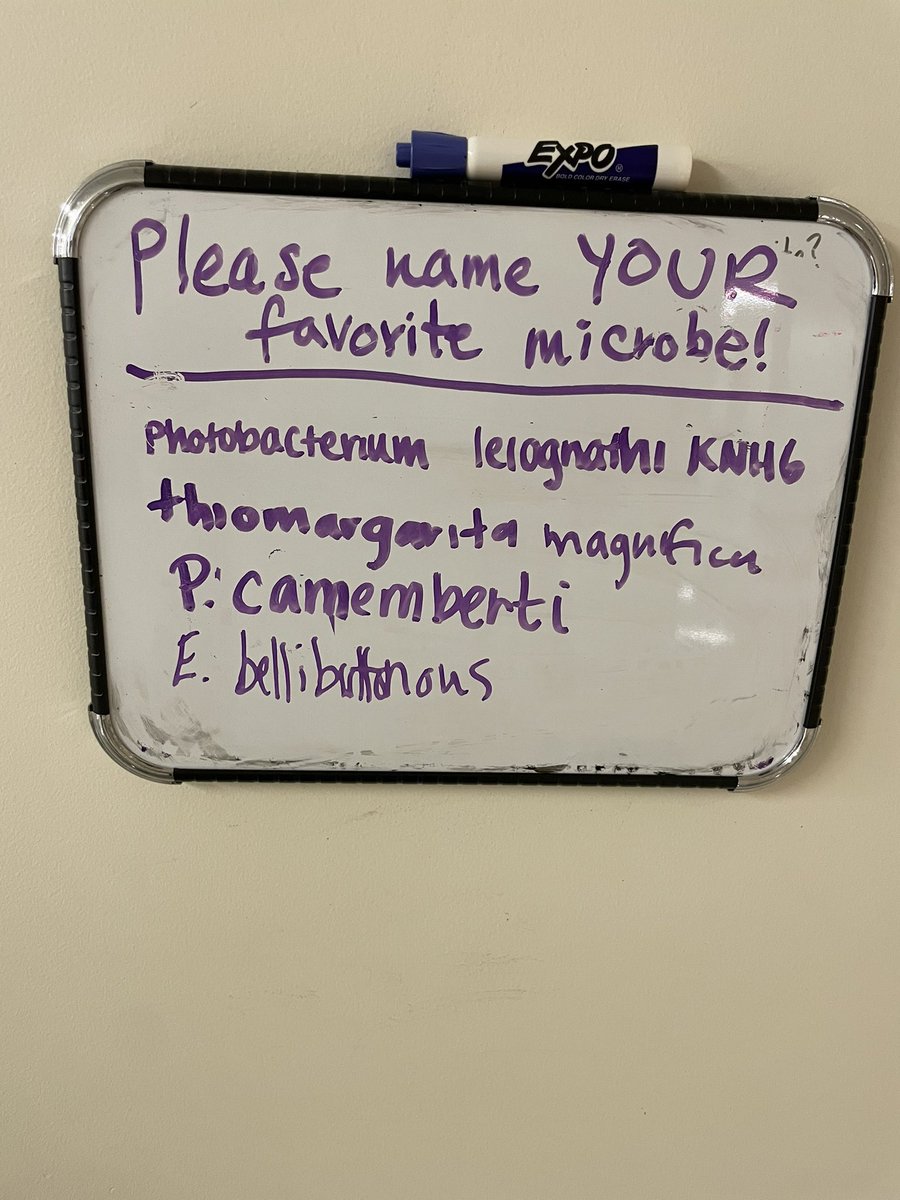 EXPO®
BOLD COLOR DRY ERASE
Please name YOUR
favorite microbe!
Photobacterium leiognathi KNH6
thiomargarita magnifica
P. camemberti
E. bellibuttonous